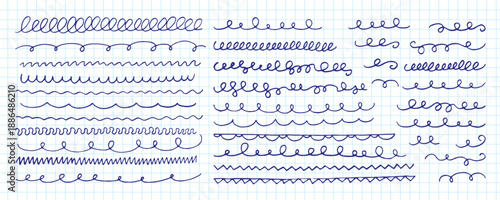 Adobe Stock | #1886486210